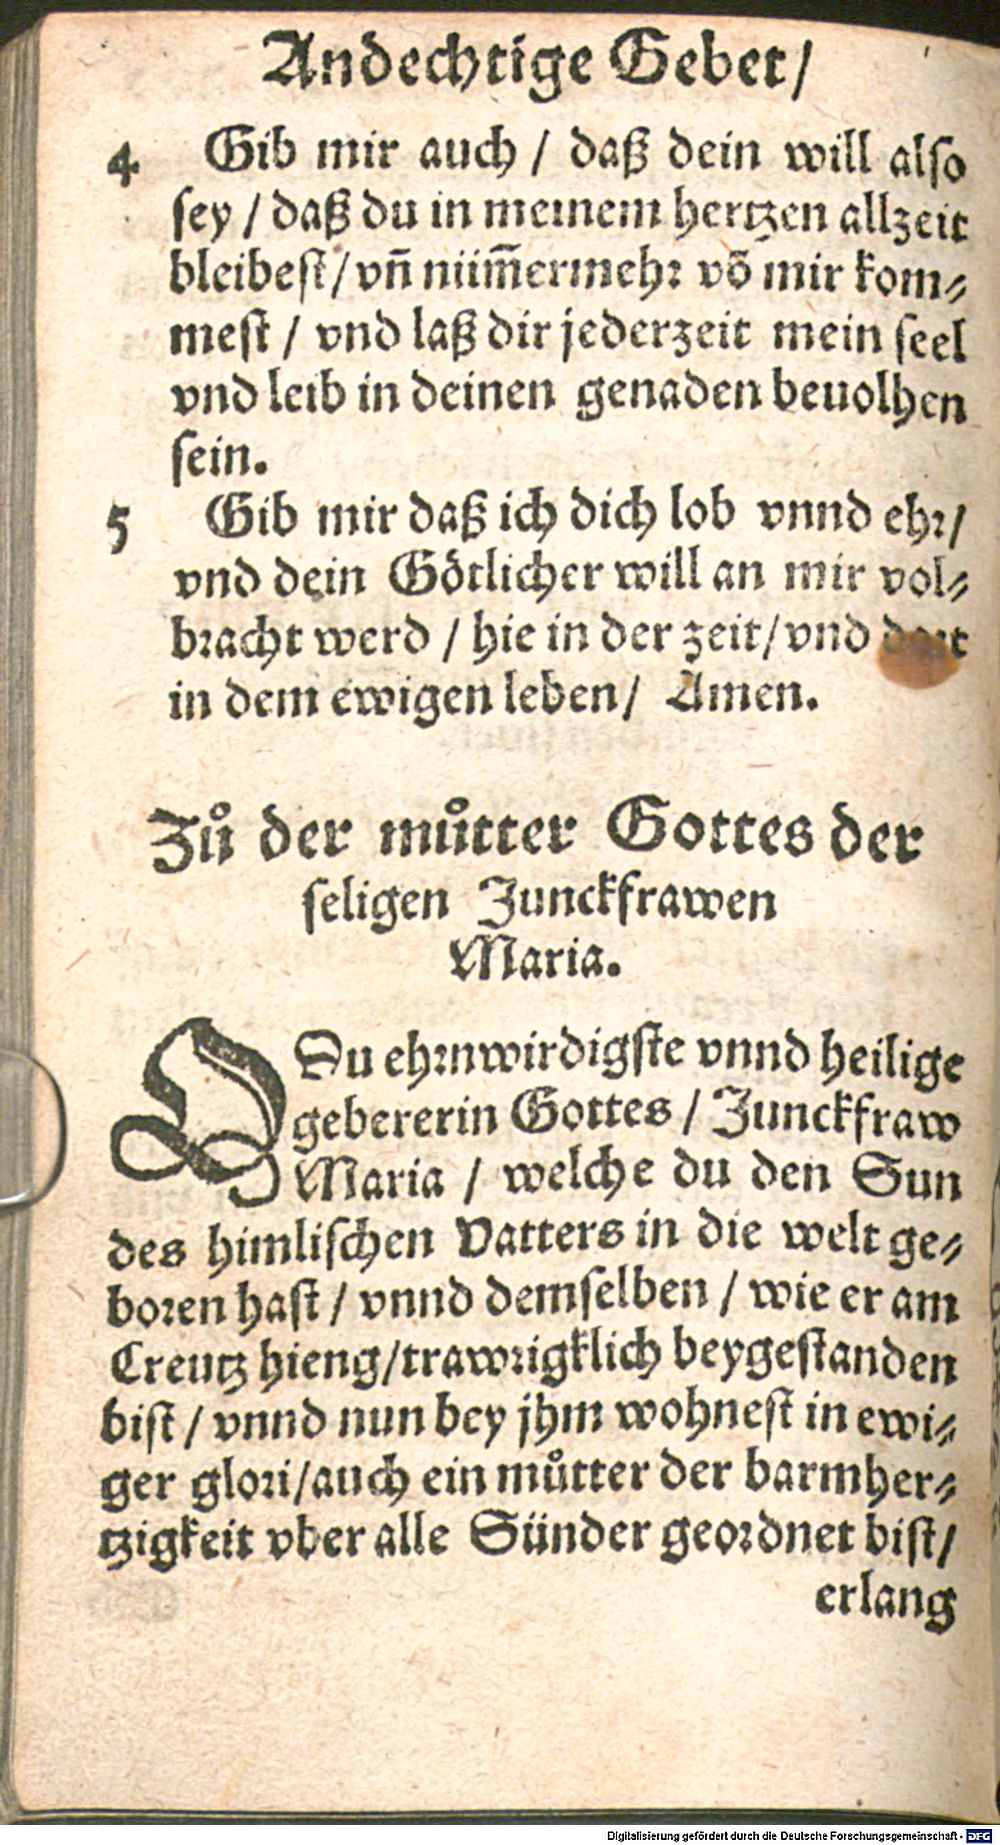 Andechtige Gebet/
4 Gib mir auch / daß dein will also
sey / daß du in meinem hertzen allzeit
bleibest/ vñ niim̃ermehr võ mir kom⸗
mest / vnd laß dir jederzeit mein seel
vnd leib in deinen genaden beuolhen
sein.
5 Gib mir daß ich dich lob vnnd ehr/
vnd dein Götlicher will an mir vol⸗
bracht werd / hie in der zeit/ vnd dort
in dem ewigen leben/ Amen.
Zů der můtter Gottes der
seligen Junckfrawen
Maria.
O Du ehrnwirdigste vnnd heilige
gebererin Gottes / Junckfraw
Maria / welche du den Sun
des himlischen Vatters in die welt ge⸗
boren hast / vnnd demselben / wie er am
Creutz hieng/trawrigklich beygestanden
bist / vnnd nun bey jhm wohnest in ewi⸗
ger glori/auch ein můtter der barmher⸗
tzigkeit vber alle Sünder geordnet bist/
erlang
Digitalisierung gefördert durch die Deutsche Forschungsgemeinschaft - DFG